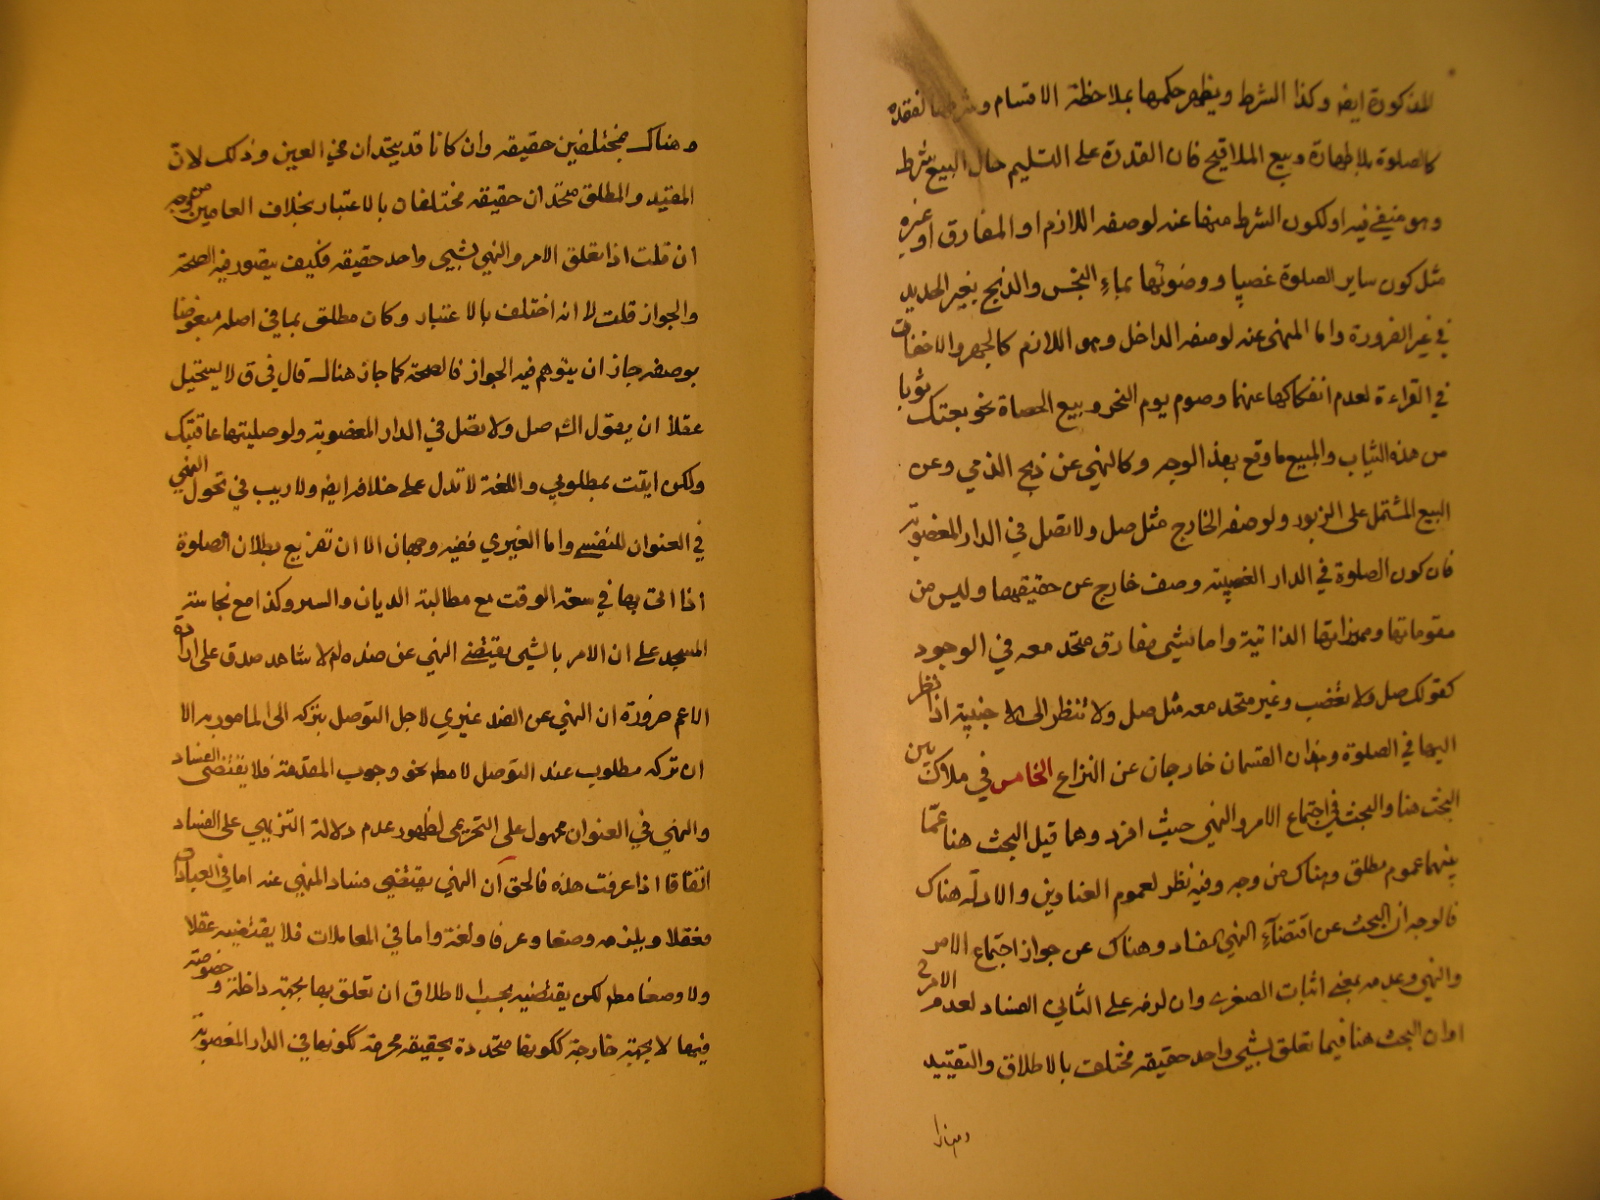 المذكورة ايضا وكذا الشرط ويظهر حكمها بملاحظة الاقسام لفقده
كالصلوة بلا طهارة وبيع الملاقيح فان القدرة على التسليم حال البيع شرط
وهو منتف فيه او لكون الشرط منهيا عنه لوصفه اللازم او المفارق او غيره
مثل كون ساير الصلوة غصبا ووضوئها بماء النجس والذبح بغير الحديد
في غير الضرورة واما المنهى عنه لوصفه الداخل وهو اللازم كالجهر والاخفات
في القراءة لعدم انفكاكها عنهما وصوم يوم النحر وبيع الحصاة نحو بعتك ثوبا
من هذه الثياب والمبيع ما وقع بهذا الوجه وكالنهي عن ذبح الذمي وعن
البيع المشتمل على الربوا ولوصفه الخارج مثل صل ولا تصل في الدار المغصوبة
فان كون الصلوة في الدار الغصبية وصف خارج عن حقيقتها وليس من
مقوماتها ومميزاتها الذاتية واما لشيء مفارق متحد معه في الوجود
كقولك صل ولا تغصب وغير متحد معه مثل صل ولا تنظر الى الاجنبية اذا نظر
اليها في الصلوة وهذان القسمان خارجان عن النزاع الخامس في ملاك بين
البحث هنا والبحث في اجتماع الامر والنهي حيث افرد وهما قيل البحث هنا عمّا
بينهما عموم مطلق وهناك من وجه وفيه نظر لعموم العناوين والادلّة هناك
فالوجه انّ البحث عن اقتضاء النهي الفساد وهناك عن جواز اجتماع الامر
والنهي وعدمه بمعنى اثبات الصغرى وان لزمه على الثاني الفساد لعدم الامر
او ان البحث هنا فيما تعلق بشيء واحد حقيقة مختلف بالاطلاق والتقييد
وهناك
وهناك بمختلفين حقيقه وان كانا قد يتحدان في العين وذلك لانّ
المقيد والمطلق متحدان حقيقه مختلفان بالاعتبار بخلاف العامين من وجه
ان قلت اذا تعلق الامر والنهي بشيء واحد حقيقه فكيف يتصور فيه الصحة
والجواز قلت لا انه اختلف بالاعتبار وكان مطلق بما في اصله مبغوضا
بوصفه جاز ان يتوهم فيه الجواز فالصحة كما جاز هناك قال في ق لا يستحيل
عقلا ان يقول الش صل ولا تصل في الدار المغصوبة ولو صليتها عاقبتك
ولكن اتيت بمطلوبي واللغة لا تدل على خلافه ايضا ولا ريب في تحول النهي
في العنوان للنفسي واما الغيري ففيه وجهان الا ان تفريع بطلان الصلوة
اذا اتى بها في سعة الوقت مع مطالبة الديان والسر وكذا مع نجاسة
المسجد على ان الامر بالشيء يقتضي النهي عن ضده ام لا شاهد صدق على ارادة
الاعم ضرورة ان النهي عن الضد غيري لاجل التوصل بتركه الى المامور به الا
ان تركه مطلوب عند التوصل لا مط نحو وجوب المقدمة فلا يقتضى الفساد
والنهي في العنوان محمول على التحريمى لظهور عدم دلالة التنزيهي على الفساد
اتفاقا اذا عرفت هذه فالحق ان النهي يقتضي فساد المنهي عنه اما في العبادات
فعقلا ويلزمه وضعا وعرفا ولغة واما في المعاملات فلا يقتضيه عقلا
ولا وضعا مط لكن يقتضيه بحسب الاطلاق ان تعلق بها بجهة داخلة وخصوصية
فيها لا بجهة خارجة ككونها متحددة بحقيقة محرمة ككونها في الدار المغصوبة